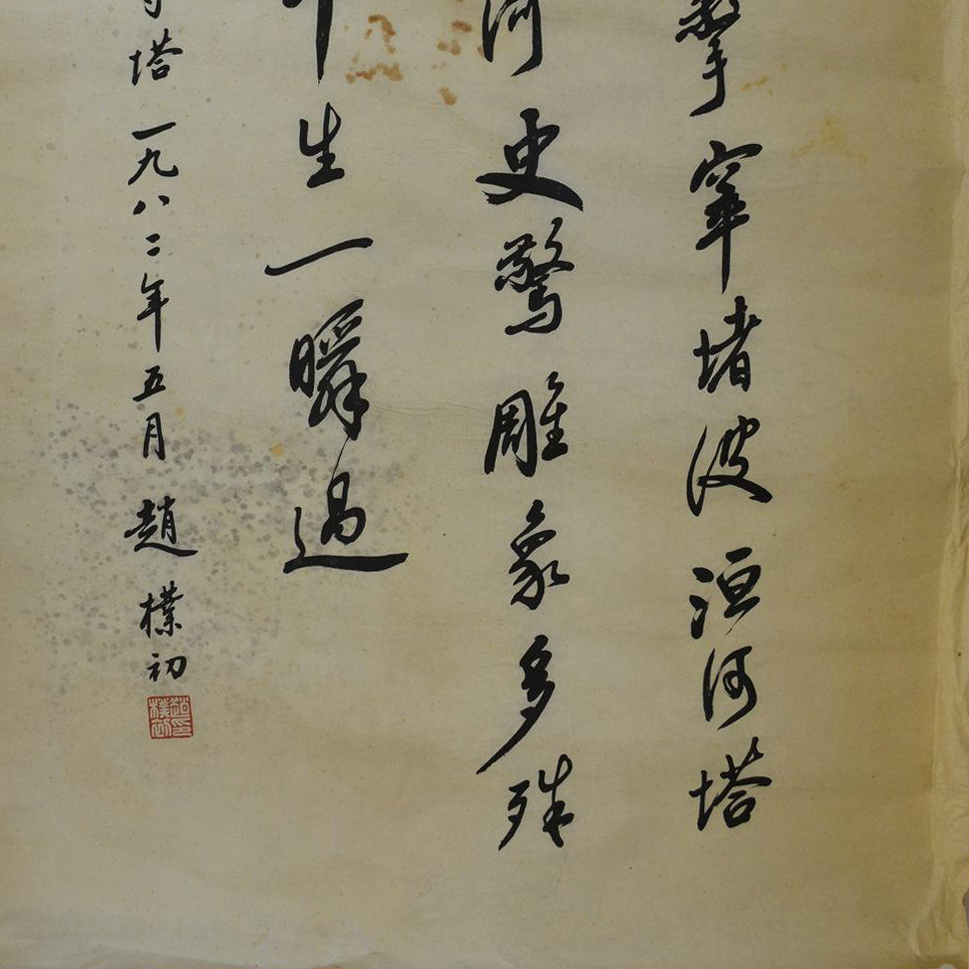 擎窣堵波洹河塔
河史驚雕象多殊
生一瞬過
塔一九八二年五月趙樸初
趙樸初印